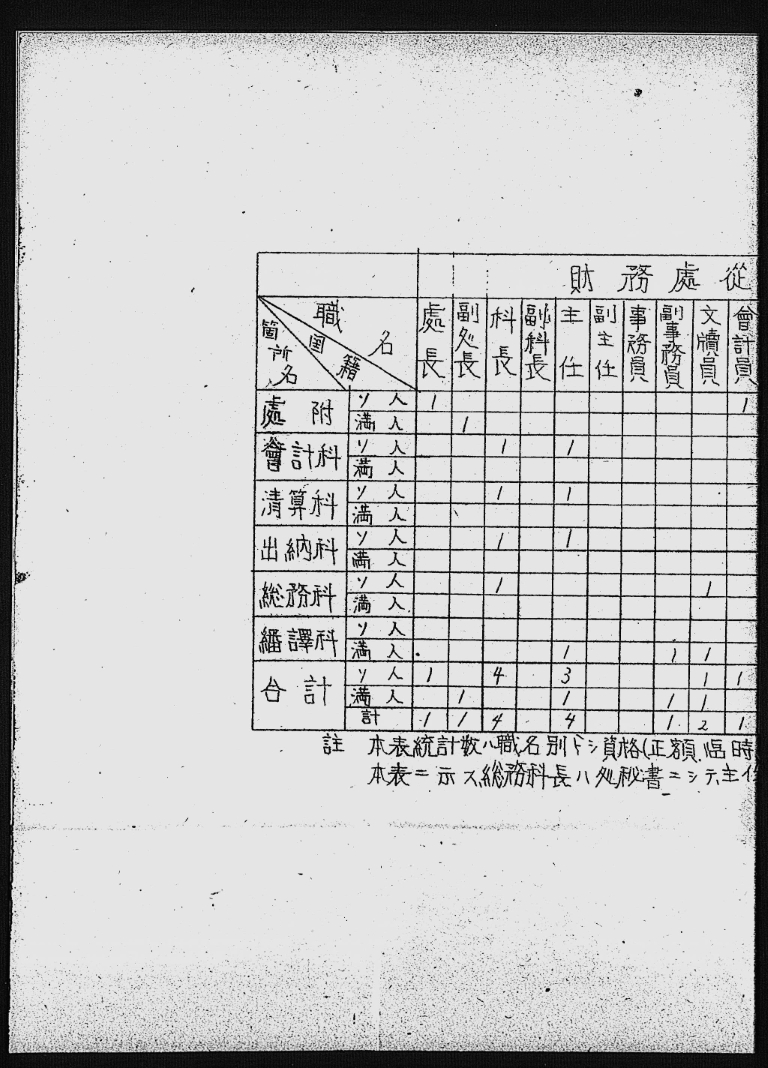 財務處從
職名 国籍 箇所名 處長 副処長 科長 副科長 主任 副主任 事務員 副事務員 文牘員 會計員
處附 ソ人 1 1
満人 1
會計科 ソ人 1 1
満人
清算科 ソ人 1 1
満人
出納科 ソ人 1 1
満人
総務科 ソ人 1 1
満人
繙譯科 ソ人
満人 1 1 1
合計 ソ人 1 4 3 1 1
満人 1 1 1 1
計 1 1 4 4 1 2 1
註 本表統計数ハ職名別トシ資格(正額臨時
本表ニ示ス総務科長ハ処秘書ニシテ主任